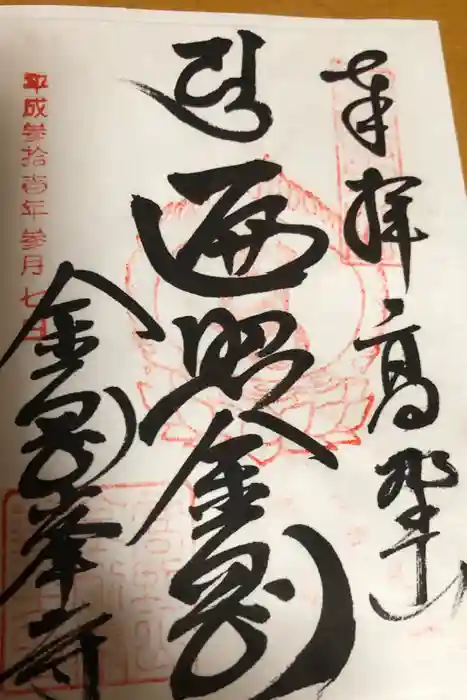 奉拝 高野山
遍照金剛
金剛峯寺
平成参拾壱年参月七日